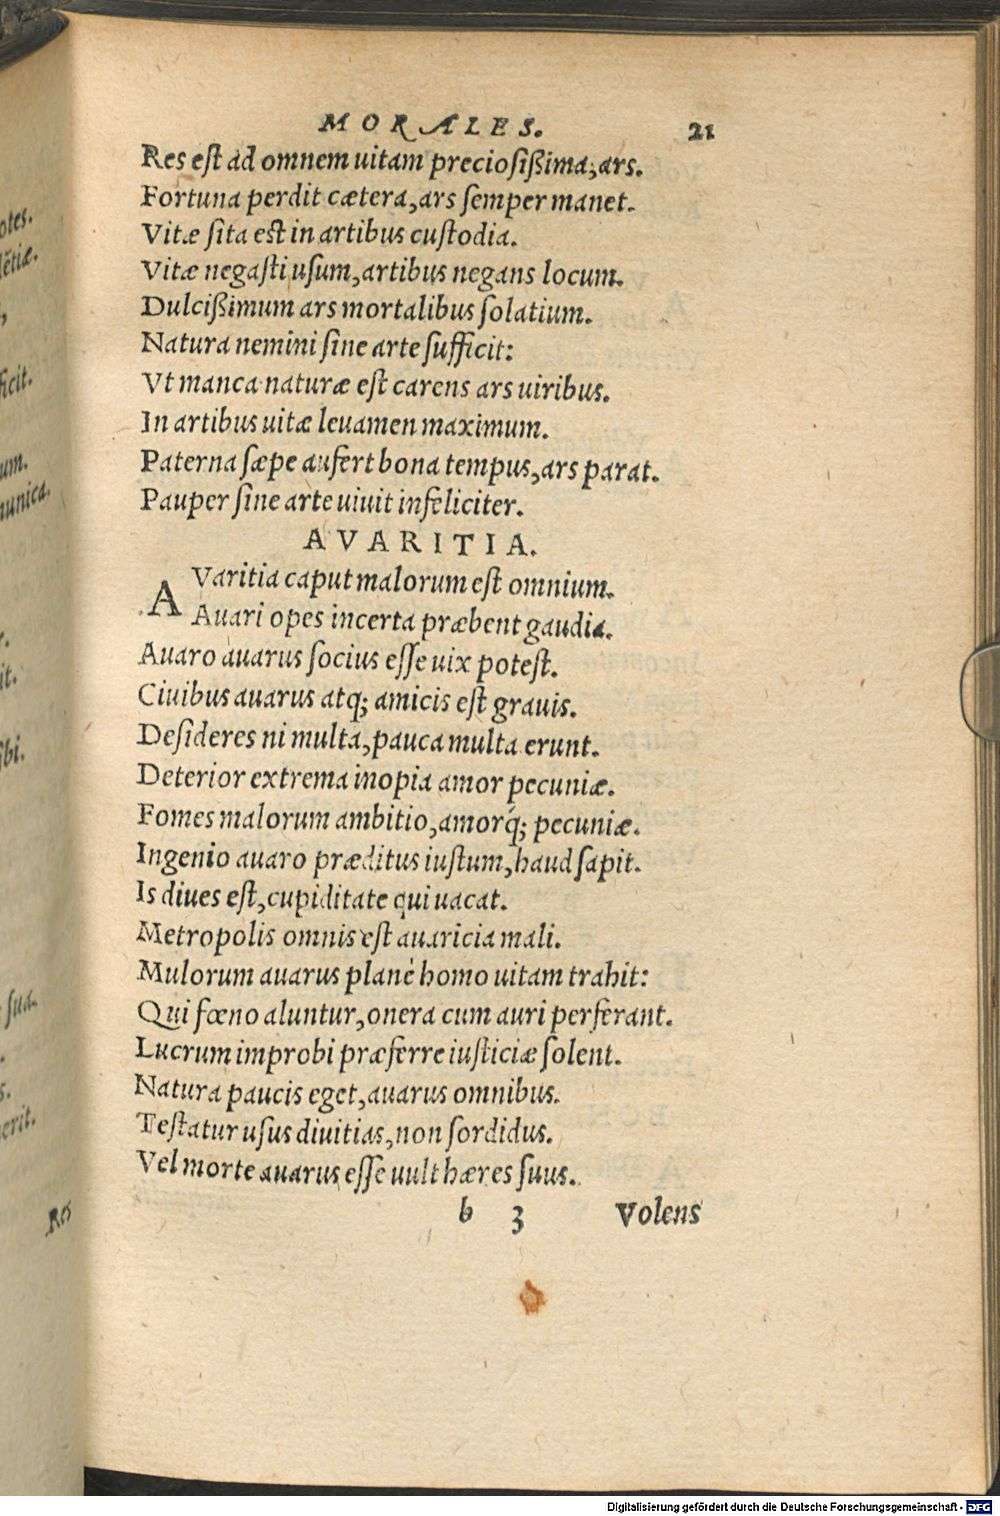 MORALES. 21
Res est ad omnem uitam preciosißima, ars.
Fortuna perdit cætera, ars semper manet.
Vitæ sita est in artibus custodia.
Vitæ negasti usum, artibus negans locum.
Dulcißimum ars mortalibus solatium.
Natura nemini sine arte sufficit:
Vt manca naturæ est carens ars uiribus.
In artibus uitæ leuamen maximum.
Paterna sæpe aufert bona tempus, ars parat.
Pauper sine arte uiuit infeliciter.
AVARITIA.
AVaritia caput malorum est omnium.
Auari opes incerta præbent gaudia.
Auaro auarus socius esse uix potest.
Ciuibus auarus atq; amicis est grauis.
Desideres ni multa, pauca multa erunt.
Deterior extrema inopia amor pecuniæ.
Fomes malorum ambitio, amorq́; pecuniæ.
Ingenio auaro præditus iustum, haud sapit.
Is diues est, cupiditate qui uacat.
Metropolis omnis est auaricia mali.
Mulorum auarus planè homo uitam trahit:
Qui fœno aluntur, onera cum auri perferant.
Lucrum improbi præferre iusticiæ solent.
Natura paucis eget, auarus omnibus.
Testatur usus diuitias, non sordidus.
Vel morte auarus esse uult hæres suus.
b 3 Volens
otes.
ficit.
um.
munica.
it.
ibi.
sua.
erit.
Res
Digitalisierung gefördert durch die Deutsche Forschungsgemeinschaft - DFG